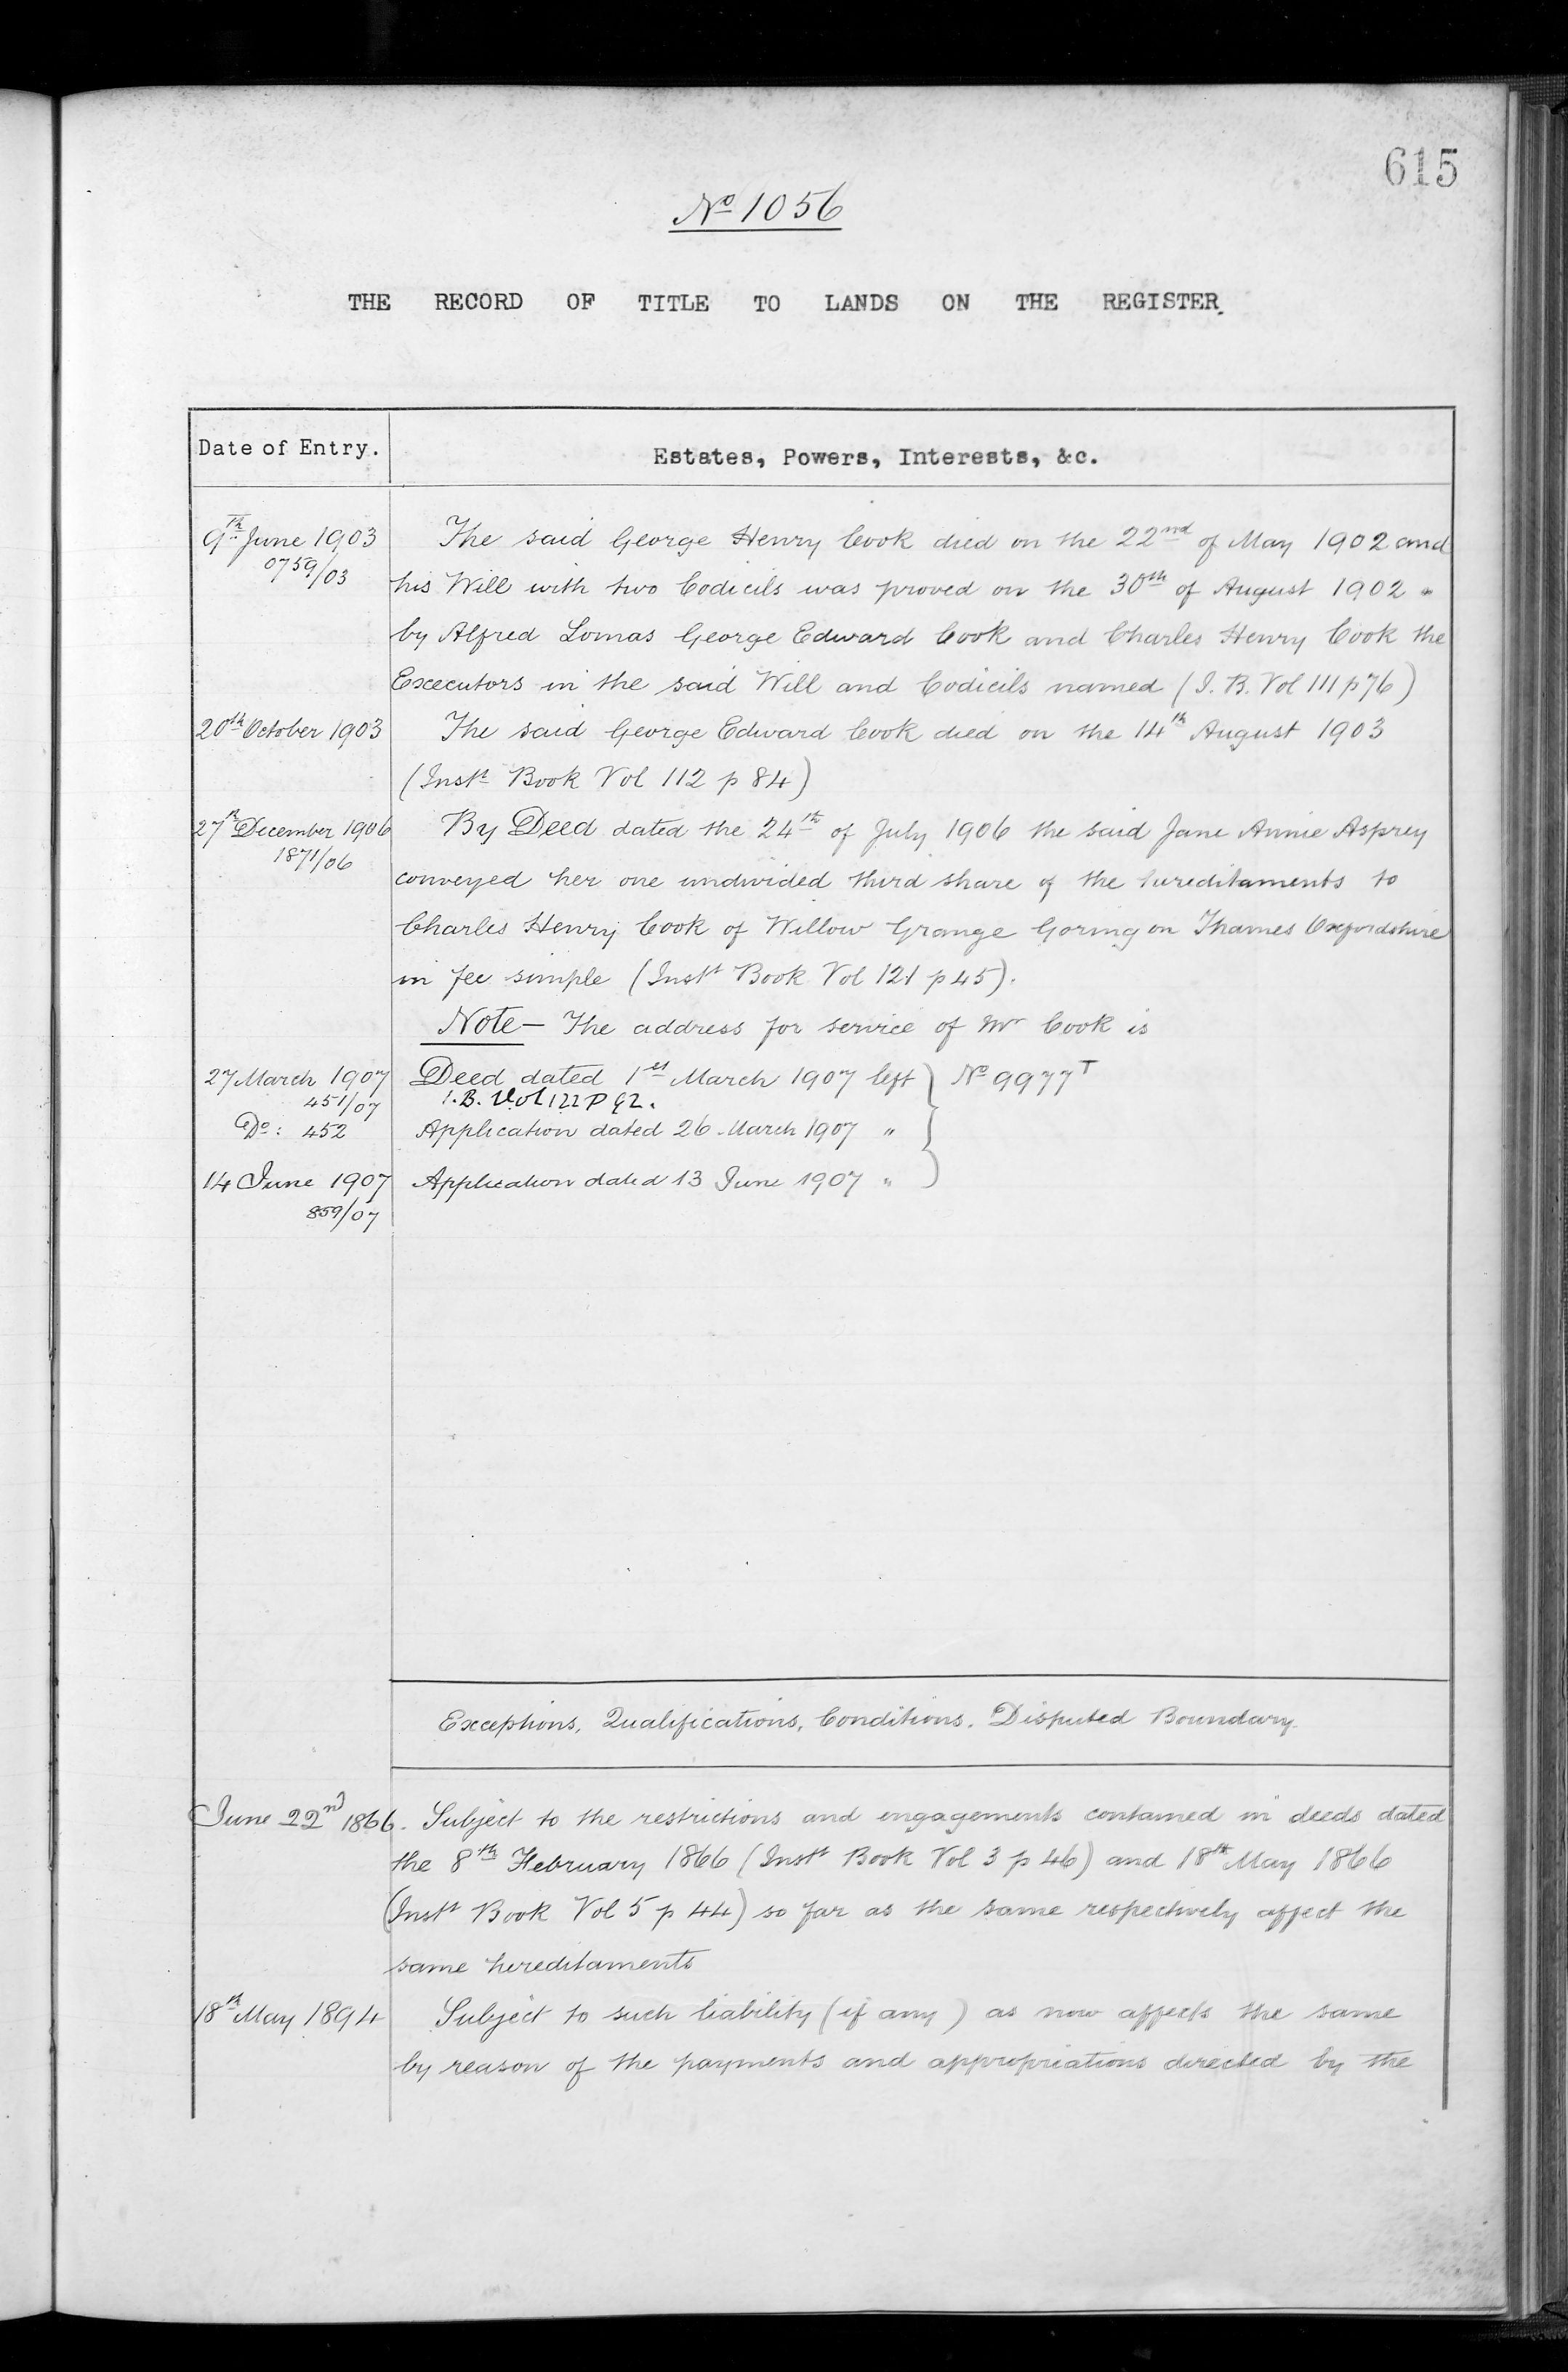 615
No 1056
THE RECORD OF TITLE TO LANDS ON THE REGISTER.
Date of Entry.
Estates, Powers, Interests, &c.
9th June 1903
0759/03
The said George Henry Cook died on the 22nd of May 1902 and
his Will with two Codicils was proved on the 30th of August 1902
by Alfred Lomas George Edward Cook and Charles Henry Cook the
Executors in the said Will and Codicils named (I. B. Vol 111 p 76)
20th October 1903
The said George Edward Cook died on the 14th August 1903
(Instt Book Vol 112 p 84)
27th December 1906
1871/06
By Deed dated the 24th of July 1906 the said Jane Annie Asprey
conveyed her one undivided third share of the hereditaments to
Charles Henry Cook of Willow Grange Goring on Thames Oxfordshire
in fee simple (Instt Book Vol 121 p 45).
Note — The address for service of Mr Cook is
27 March 1907
451/07
Deed dated 1st March 1907 left } No 9977T
I. B. Vol 122 P 92.
Do: 452
Application dated 26 March 1907 "
14 June 1907
859/07
Application dated 13 June 1907 "
Exceptions, Qualifications, Conditions. Disputed Boundary.
June 22nd 1866.
Subject to the restrictions and engagements contained in deeds dated
the 8th February 1866 (Instt Book Vol 3 p 46) and 18th May 1866
(Instt Book Vol 5 p 44) so far as the same respectively affect the
same hereditaments
18th May 1894
Subject to such liability (if any) as now affects the same
by reason of the payments and appropriations directed by the